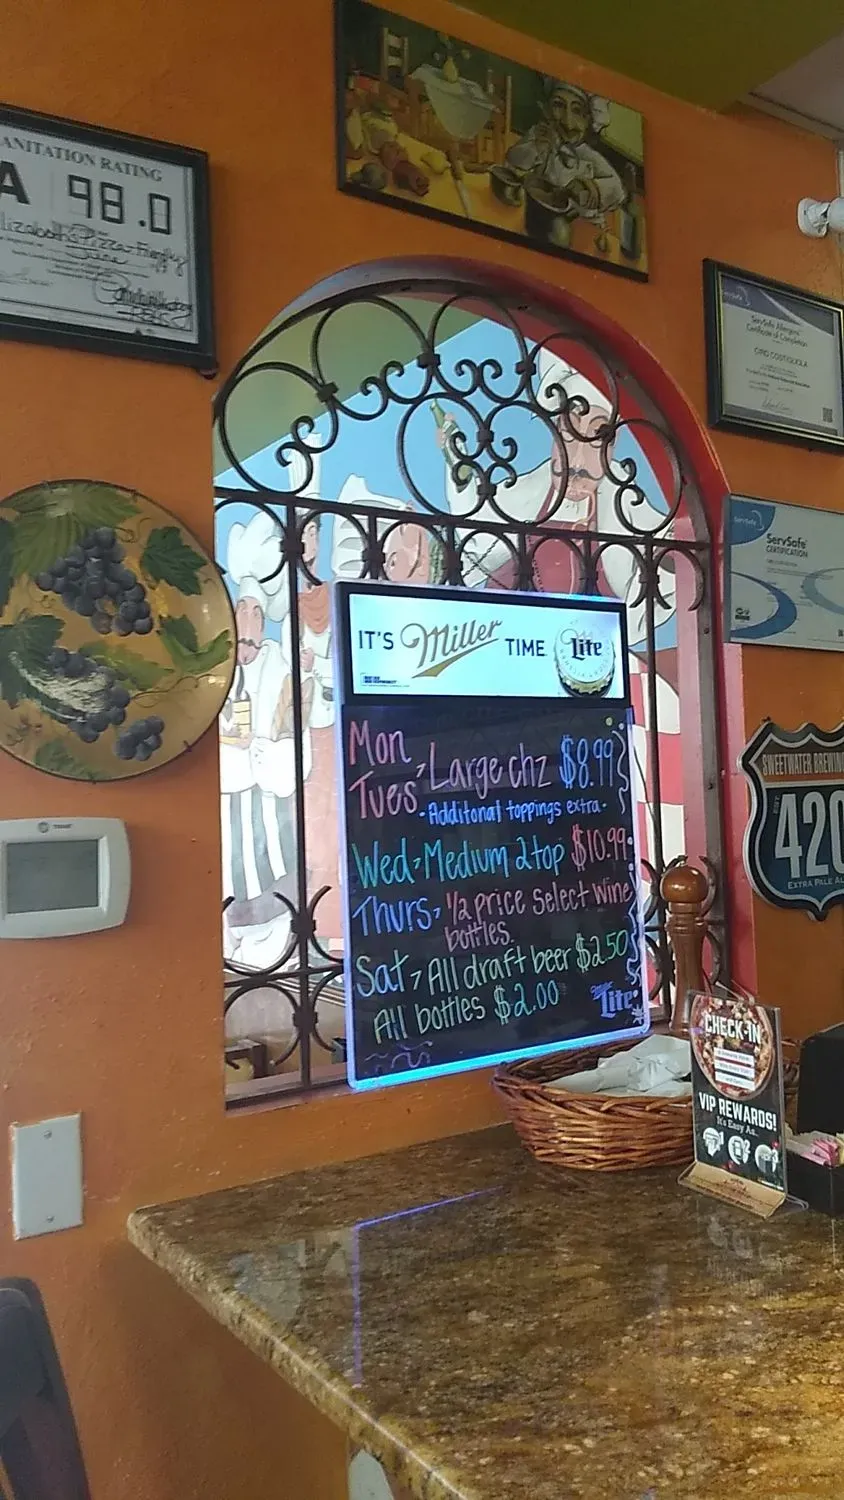 ANITATION RATING
A 98.0
lizabeth's Pizza-Friendly
ServSafe
ServSafe Allergens
Certificate of Completion
CIRO COSTAGLIOLA
ServSafe
ServSafe
CERTIFICATION
IT'S Miller TIME
Lite
Mon
Tues, Large chz $8.99
- Additonal toppings extra -
Wed, Medium 2 top $10.99
Thurs, 1/2 price select wine
bottles.
Sat, All draft beer $2.50
All bottles $2.00
Miller
Lite
SWEETWATER BREWIN
EST
420
EXTRA PALE AL
CHECK-IN
VIP REWARDS!
It's Easy As...